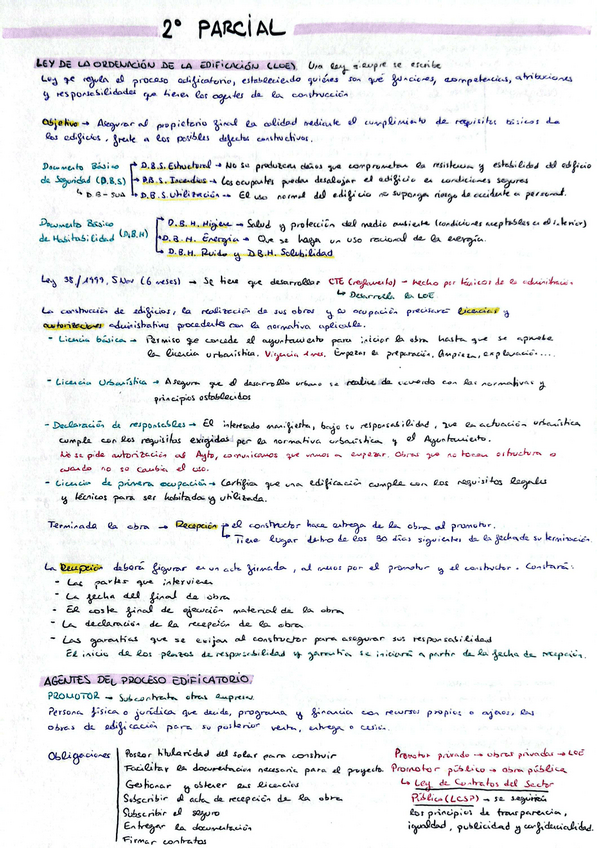 2º PARCIAL
LEY DE LA ORDENACIÓN DE LA EDIFICACIÓN (LOE) Una ley siempre se escribe
Ley qe regula el proceso edificatorio, estableciendo quiénes son qué funciones, competencias, atribuciones
y responsabilidades que tienen los agentes de la construcción
Objetivo → Asegurar al propietario final la calidad mediante el cumplimiento de requisitos básicos de
los edificios, frente a los posibles defectos constructivos.
Documento Básico
de Seguridad (D.B.S)
↳ DB-SUA
D.B.S. Estructural → No se produzcan daños que comprometan la resistencia y estabilidad del edificio
D.B.S. Incendios → Los ocupantes puedan desalojar el edificio en condiciones seguras
D.B.S. Utilización → El uso normal del edificio no suponga riesgo de accidente a personal.
Documento Básico
de Habitabilidad (D.B.H)
D.B.H. Higiene → Salud y protección del medio ambiente (condiciones aceptables en el interior)
D.B.H. Energía → Que se haga un uso racional de la energía.
D.B.H. Ruido y D.B.H. Salubilidad
Ley 38/1999, 5 Nov (6 meses) → Se tiene que desarrollar CTE (reglamento) → hecho por técnicos de la administración
↳ Desarrolla la LOE
La construcción de edificios, la realización de sus obras y su ocupación precisará licencias y
autorizaciones administrativas procedentes con la normativa aplicable.
- Licencia básica → Permiso que concede el ayuntamiento para iniciar la obra hasta que se apruebe
la licencia urbanística. Vigencia 1 mes. Empezar la preparación, limpieza, explanación....
- Licencia Urbanística → Asegura que el desarrollo urbano se realice de acuerdo con las normativas y
principios establecidos
- Declaración de responsables → El interesado manifiesta, bajo su responsabilidad, que la actuación urbanística
cumple con los requisitos exigidos por la normativa urbanística y el Ayuntamiento.
No se pide autorización al Ayto, comunicamos que vamos a empezar. Obras que no tocan estructura o
cuando no se cambia el uso.
- Licencia de primera ocupación → Certifica que una edificación cumple con los requisitos legales
y técnicos para ser habitada y utilizada.
Terminada la obra → Recepción → el constructor hace entrega de la obra al promotor.
↳ Tiene lugar dentro de los 30 días siguientes de la fecha de su terminación.
La Recepción deberá figurar en un acta firmada, al menos por el promotor y el constructor. Constará:
- Las partes que intervienen
- La fecha del final de obra
- El coste final de ejecución material de la obra
- La declaración de la recepción de la obra
- Las garantías que se exijan al constructor para asegurar sus responsabilidad
El inicio de los plazos de responsabilidad y garantía se iniciará a partir de la fecha de recepción.
AGENTES DEL PROCESO EDIFICATORIO
PROMOTOR → Subcontrata otras empresas.
Persona física o jurídica que decide, programa y financia con recursos propios o ajenos, las
obras de edificación para su posterior venta, entrega o cesión.
Obligaciones
Poseer titularidad del solar para construir
Facilitar la documentación necesaria para el proyecto
Gestionar y obtener sus licencias
Subscribir el acta de recepción de la obra
Subscribir el seguro
Entregar la documentación
Firmar contratos
Promotor privado → obras privadas → LOE
Promotor público → obra pública
↳ Ley de Contratos del Sector
Público (LCSP) → se seguirán
los principios de transparencia,
igualdad, publicidad y confidencialidad.